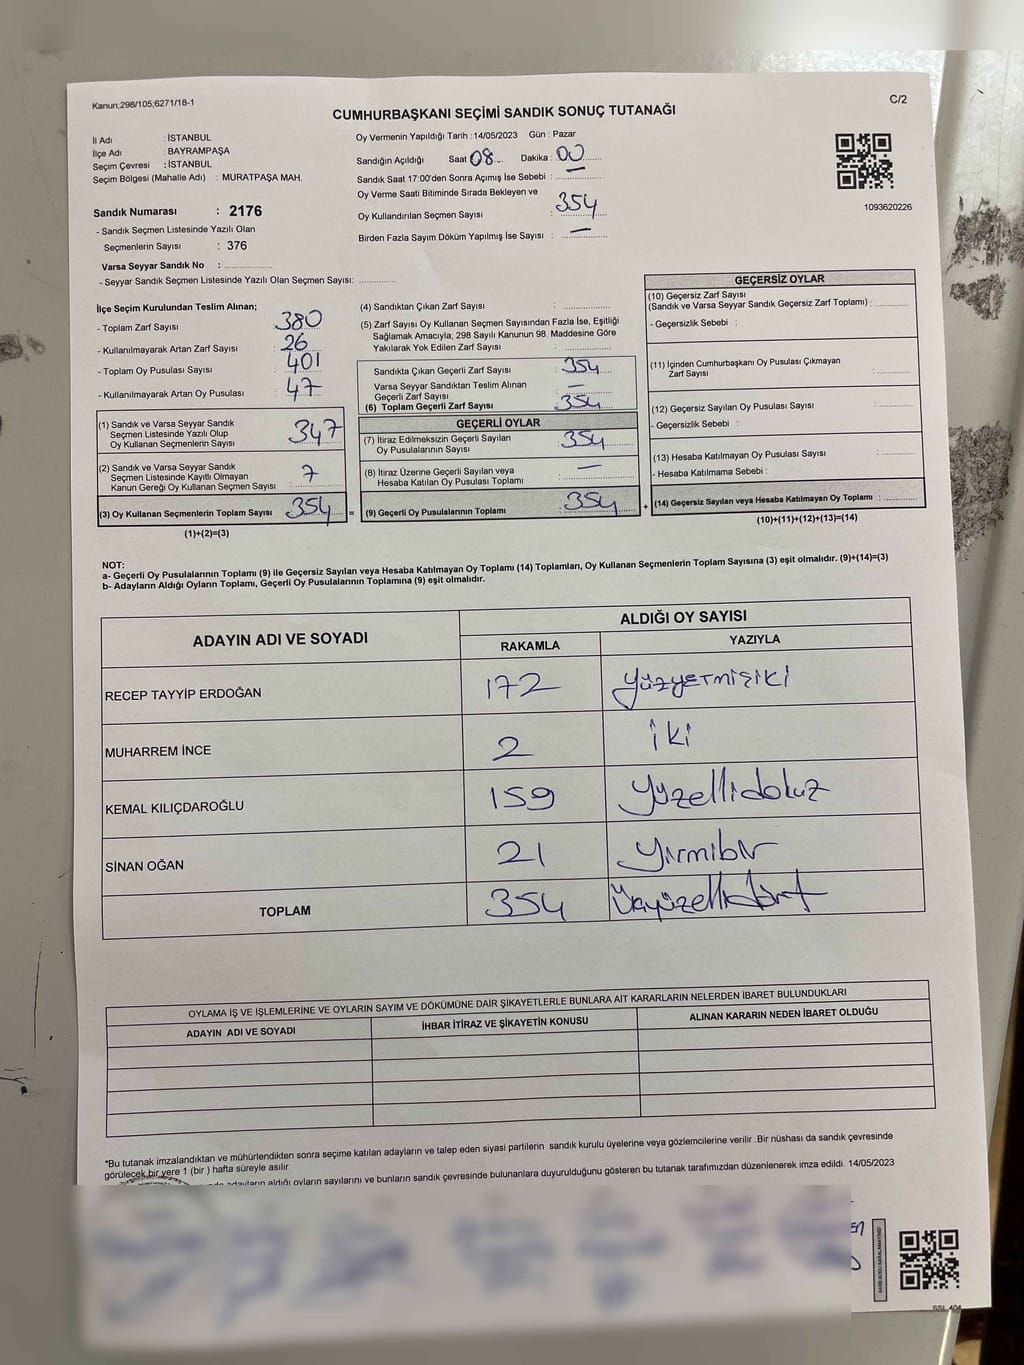 Kanun;298/105;6271/18-1
C/2
CUMHURBAŞKANI SEÇİMİ SANDIK SONUÇ TUTANAĞI
İl Adı : İSTANBUL
İlçe Adı : BAYRAMPAŞA
Seçim Çevresi : İSTANBUL
Seçim Bölgesi (Mahalle Adı) : MURATPAŞA MAH.
Sandık Numarası : 2176
- Sandık Seçmen Listesinde Yazılı Olan
Seçmenlerin Sayısı : 376
Varsa Seyyar Sandık No :
- Seyyar Sandık Seçmen Listesinde Yazılı Olan Seçmen Sayısı:
Oy Vermenin Yapıldığı Tarih : 14/05/2023 Gün : Pazar
Sandığın Açıldığı Saat 08 Dakika : 00
Sandık Saat 17:00'den Sonra Açımış İse Sebebi : —
Oy Verme Saati Bitiminde Sırada Bekleyen ve
Oy Kullandırılan Seçmen Sayısı : 354
Birden Fazla Sayım Döküm Yapılmış İse Sayısı : —
1093620226
İlçe Seçim Kurulundan Teslim Alınan;
- Toplam Zarf Sayısı : 380
- Kullanılmayarak Artan Zarf Sayısı : 26
- Toplam Oy Pusulası Sayısı : 401
- Kullanılmayarak Artan Oy Pusulası : 47
(1) Sandık ve Varsa Seyyar Sandık
Seçmen Listesinde Yazılı Olup
Oy Kullanan Seçmenlerin Sayısı : 347
(2) Sandık ve Varsa Seyyar Sandık
Seçmen Listesinde Kayıtlı Olmayan
Kanun Gereği Oy Kullanan Seçmen Sayısı : 7
(3) Oy Kullanan Seçmenlerin Toplam Sayısı : 354 =
(1)+(2)=(3)
(4) Sandıktan Çıkan Zarf Sayısı :
(5) Zarf Sayısı Oy Kullanan Seçmen Sayısından Fazla İse, Eşitliği
Sağlamak Amacıyla; 298 Sayılı Kanunun 98. Maddesine Göre
Yakılarak Yok Edilen Zarf Sayısı :
Sandıkta Çıkan Geçerli Zarf Sayısı : 354
Varsa Seyyar Sandıktan Teslim Alınan
Geçerli Zarf Sayısı : —
(6) Toplam Geçerli Zarf Sayısı : 354
GEÇERLİ OYLAR
(7) İtiraz Edilmeksizin Geçerli Sayılan
Oy Pusulalarının Sayısı : 354
(8) İtiraz Üzerine Geçerli Sayılan veya
Hesaba Katılan Oy Pusulası Toplamı : —
(9) Geçerli Oy Pusulalarının Toplamı : 354 +
GEÇERSİZ OYLAR
(10) Geçersiz Zarf Sayısı
(Sandık ve Varsa Seyyar Sandık Geçersiz Zarf Toplamı) :
- Geçersizlik Sebebi :
(11) İçinden Cumhurbaşkanı Oy Pusulası Çıkmayan
Zarf Sayısı :
(12) Geçersiz Sayılan Oy Pusulası Sayısı :
- Geçersizlik Sebebi :
(13) Hesaba Katılmayan Oy Pusulası Sayısı :
- Hesaba Katılmama Sebebi :
(14) Geçersiz Sayılan veya Hesaba Katılmayan Oy Toplamı :
(10)+(11)+(12)+(13)=(14)
NOT:
a- Geçerli Oy Pusulalarının Toplamı (9) ile Geçersiz Sayılan veya Hesaba Katılmayan Oy Toplamı (14) Toplamları, Oy Kullanan Seçmenlerin Toplam Sayısına (3) eşit olmalıdır. (9)+(14)=(3)
b- Adayların Aldığı Oyların Toplamı, Geçerli Oy Pusulalarının Toplamına (9) eşit olmalıdır.
ADAYIN ADI VE SOYADI ALDIĞI OY SAYISI
RAKAMLA YAZIYLA
RECEP TAYYİP ERDOĞAN 172 yüzyetmişiki
MUHARREM İNCE 2 iki
KEMAL KILIÇDAROĞLU 159 yüzellidokuz
SİNAN OĞAN 21 yirmibir
TOPLAM 354 üçyüzellidört
OYLAMA İŞ VE İŞLEMLERİNE VE OYLARIN SAYIM VE DÖKÜMÜNE DAİR ŞİKAYETLERLE BUNLARA AİT KARARLARIN NELERDEN İBARET BULUNDUKLARI
ADAYIN ADI VE SOYADI İHBAR İTİRAZ VE ŞİKAYETİN KONUSU ALINAN KARARIN NEDEN İBARET OLDUĞU
*Bu tutanak imzalandıktan ve mühürlendikten sonra seçime katılan adayların ve talep eden siyasi partilerin sandık kurulu üyelerine veya gözlemcilerine verilir .Bir nüshası da sandık çevresinde
görülecek bir yere 1 (bir ) hafta süreyle asılır.
adayların aldığı oyların sayılarını ve bunların sandık çevresinde bulunanlara duyurulduğunu gösteren bu tutanak tarafımızdan düzenlenerek imza edildi. 14/05/2023